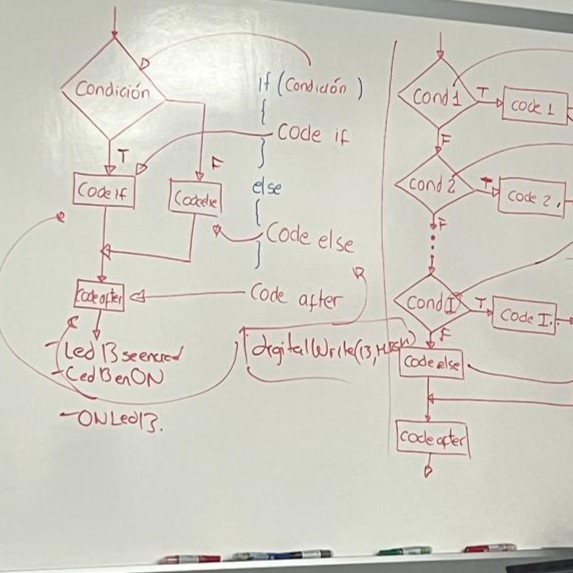 Condición
T
F
Code if
Code else
Code after
- Led 13 se enciend
- Led 13 en ON
- ON Led 13.
If (Condición)
{
Code if
}
else
{
Code else
}
Code after
digitalWrite(13, HIGH)
Cond 1
T
Code 1
F
Cond 2
T
Code 2.
F
Cond I
T
Code I.
F
Code else
Code after